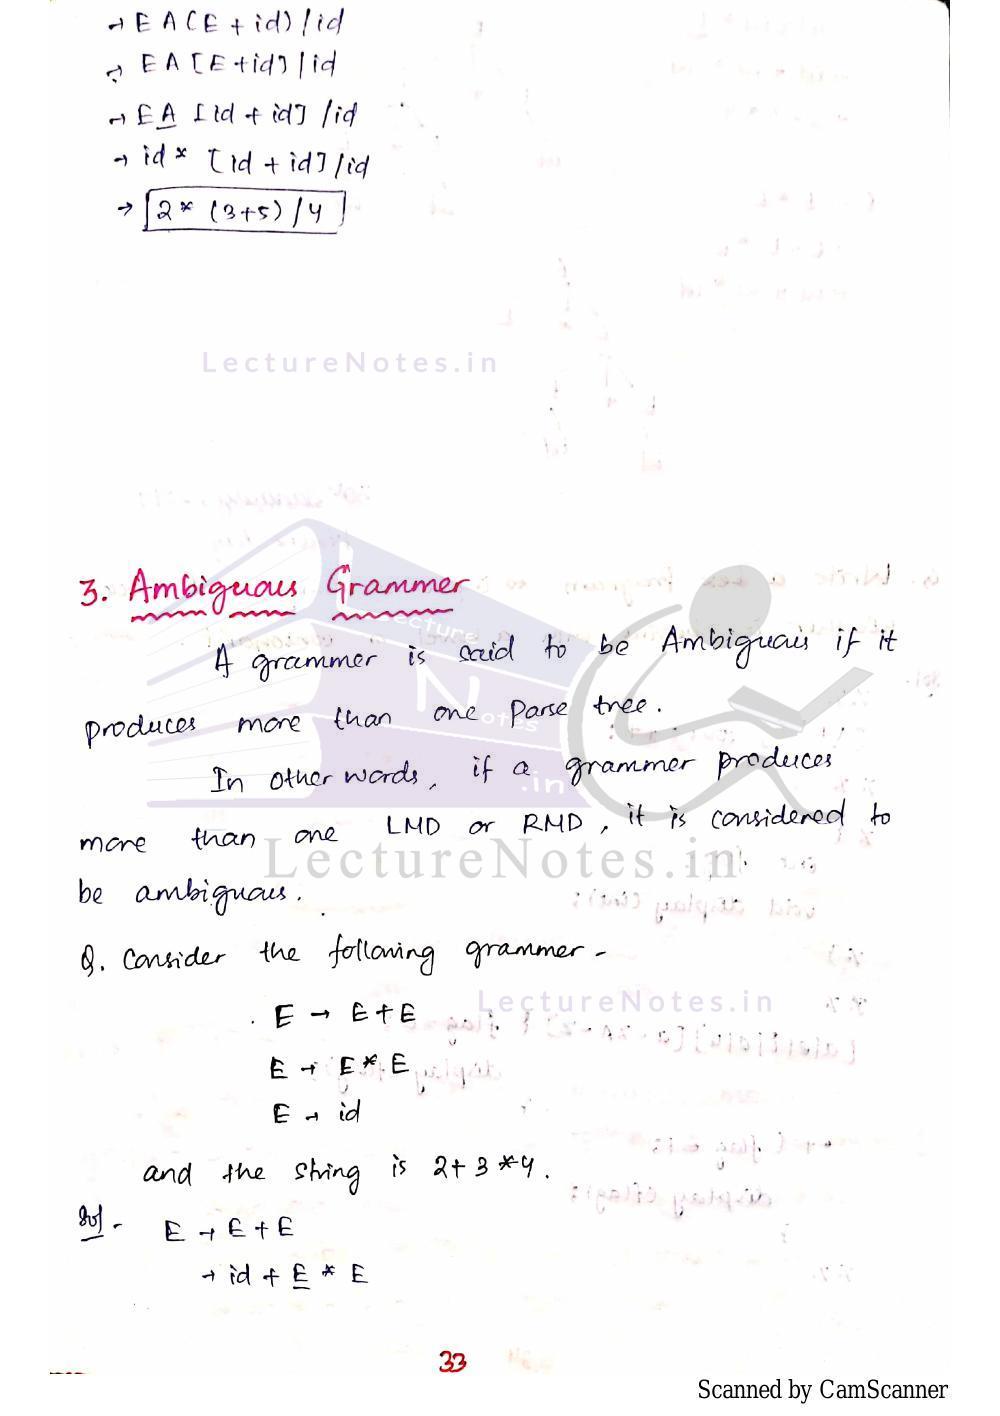 → E A (E + id) / id
→ E A [E + id] / id
→ E A [id + id] / id
→ id * [id + id] / id
→ 2 * (3+5) / 4
LectureNotes.in
3. Ambiguous Grammer
A grammer is said to be Ambiguous if it
produces more than one Parse tree.
In other words, if a grammer produces
more than one LMD or RMD, it is considered to
LectureNotes.in
be ambiguous.
Q. Consider the following grammer -
LectureNotes.in
E → E + E
E → E * E
E → id
and the string is 2+3*4.
Sol - E → E + E
→ id + E * E
33
Scanned by CamScanner